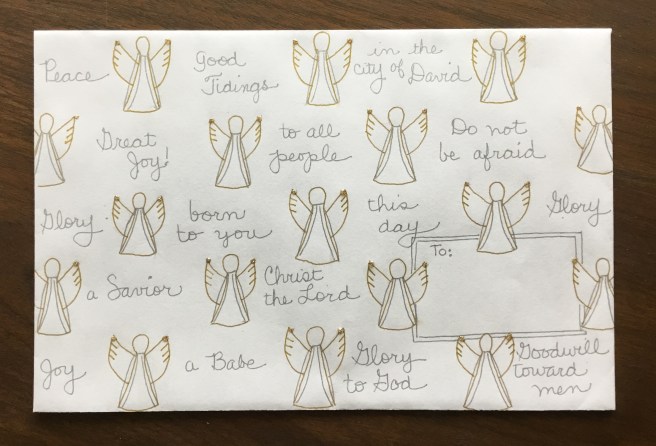 Peace
Good
Tidings
in the
city of David
Great
Joy!
to all
people
Do not
be afraid
Glory
born
to you
this
day
Glory
To:
a Savior
Christ
the Lord
Joy
a Babe
Glory
to God
Goodwill
toward
men